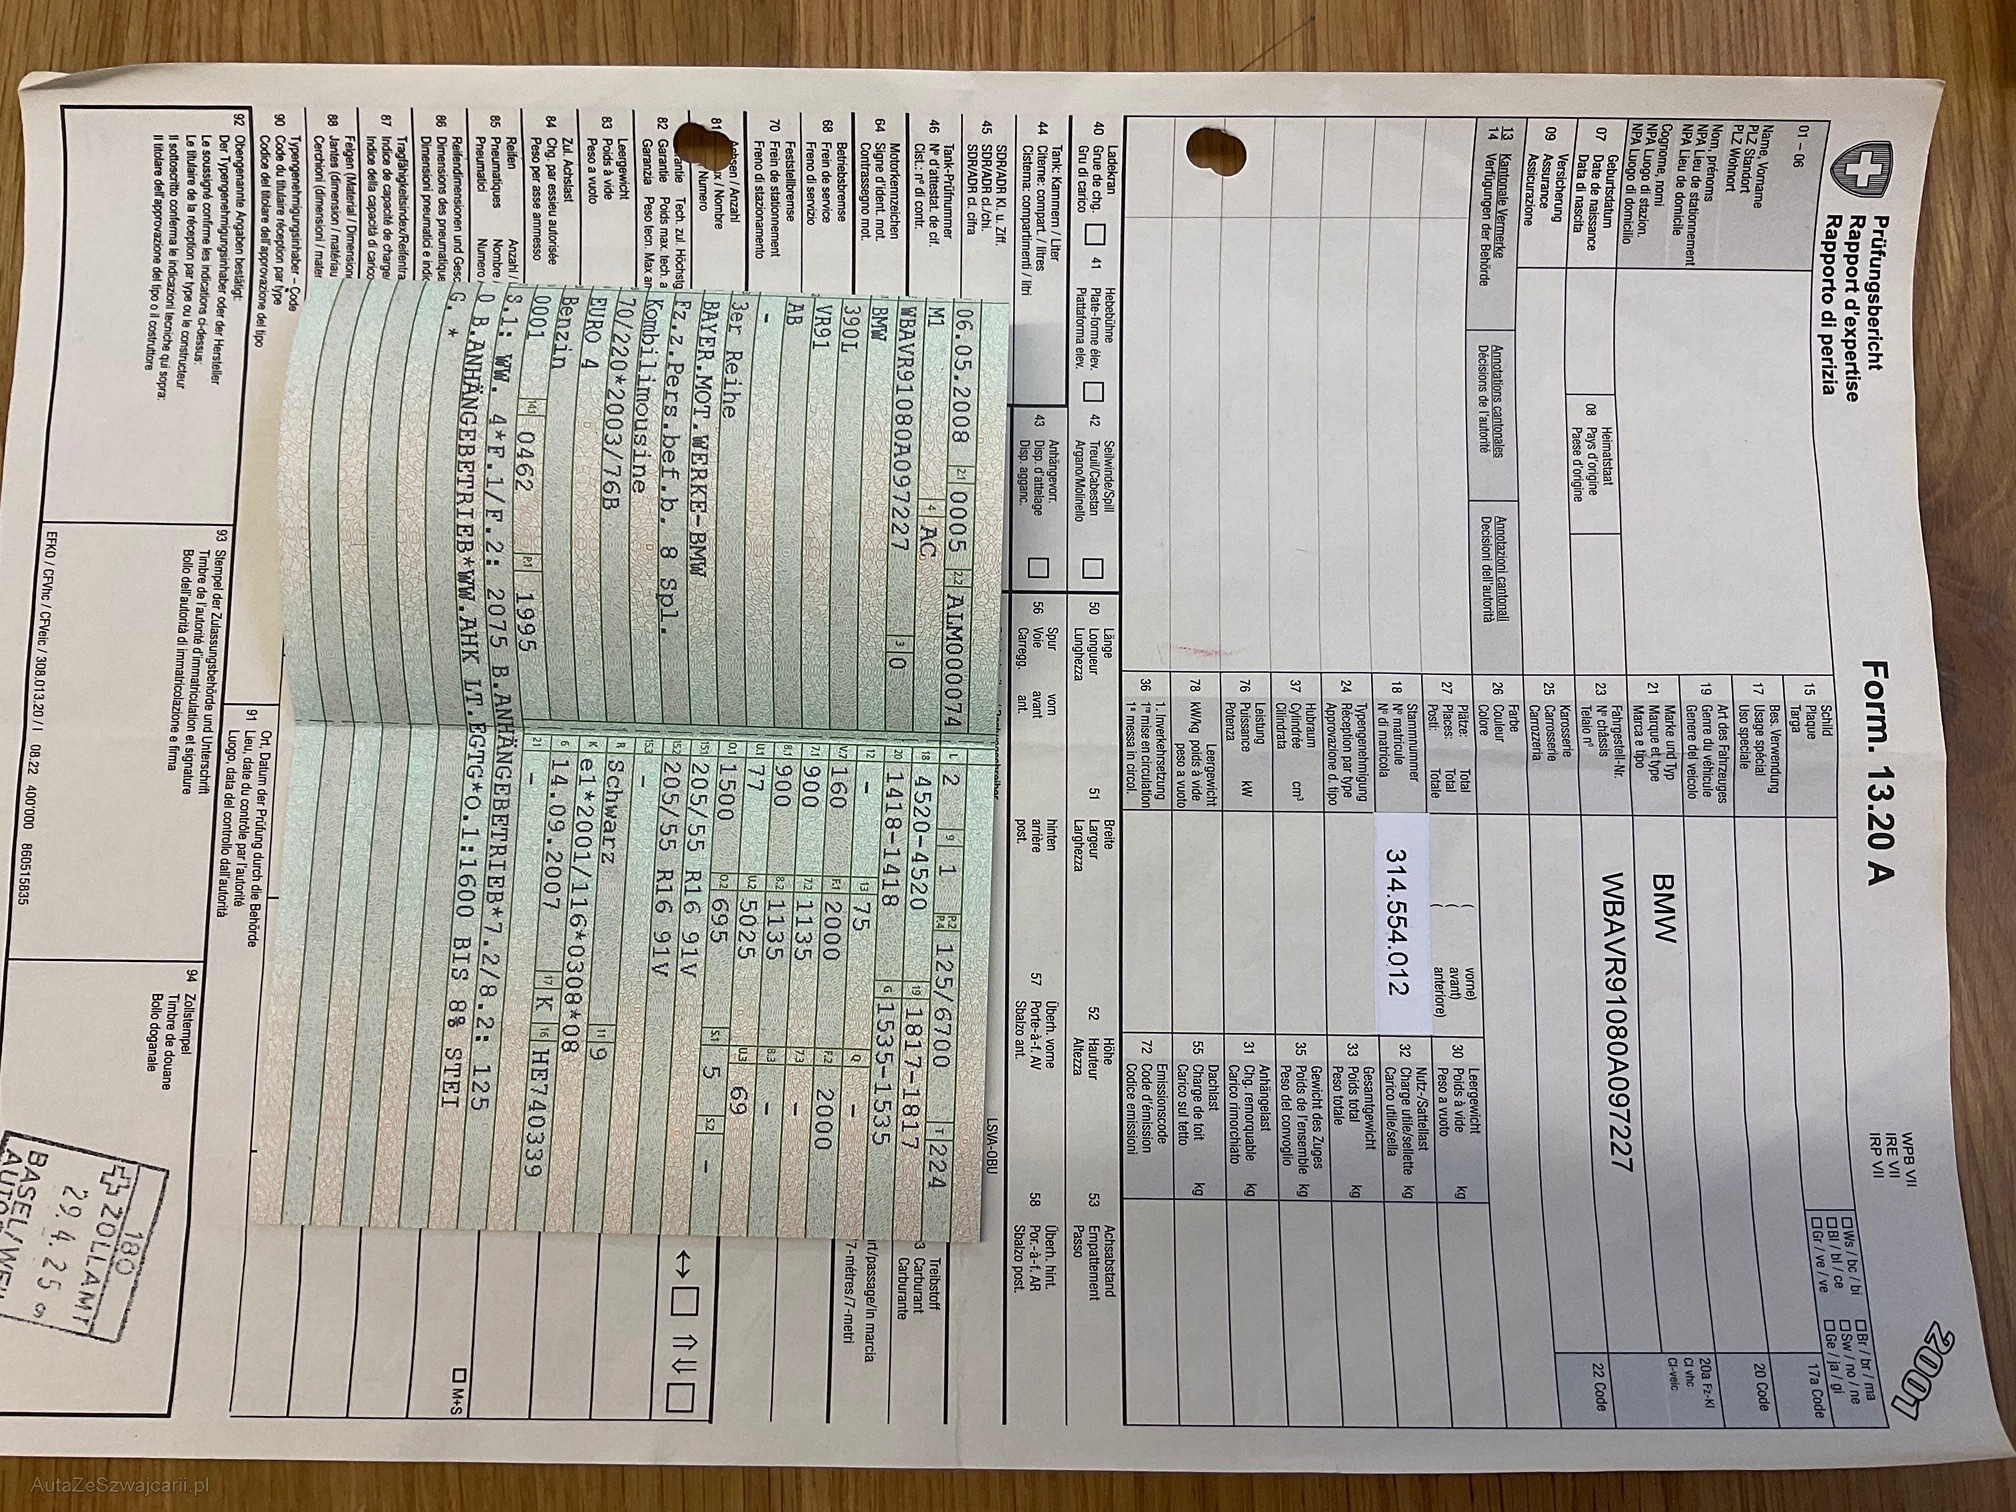 Prüfungsbericht
Rapport d'expertise
Rapporto di perizia
Form. 13.20 A
WPB VII
IRE VII
IRP VII
2001
☐Ws / bc / bi ☐Br / br / ma
☐Bl / bl / ce ☐Sw / no / ne
☐Gr / ve / ve ☐Ge / ja / gi
01 – 06
Name, Vorname
PLZ Standort
PLZ Wohnort
Nom, prénoms
NPA Lieu de stationnement
NPA Lieu de domicile
Cognome, nomi
NPA Luogo di stazion.
NPA Luogo di domicilio
07 Geburtsdatum
Date de naissance
Data di nascita
08 Heimatstaat
Pays d'origine
Paese d'origine
09 Versicherung
Assurance
Assicurazione
13 Kantonale Vermerke
14 Verfügungen der Behörde
Annotations cantonales
Décisions de l'autorité
Annotazioni cantonali
Decisioni dell'autorità
15 Schild
Plaque
Targa
17a Code
17 Bes. Verwendung
Usage spécial
Uso speciale
20 Code
19 Art des Fahrzeuges
Genre du véhicule
Genere del veicolo
20a Fz-Kl
Cl vhc
Cl-veic
21 Marke und Typ
Marque et type
Marca e tipo
BMW
22 Code
23 Fahrgestell-Nr.
N° châssis
Telaio n°
WBAVR91080A097227
25 Karosserie
Carrosserie
Carrozzeria
26 Farbe
Couleur
Colore
27 Plätze: Total
Places: Total
Posti: Totale
( vorne)
( avant)
anteriore)
30 Leergewicht
Poids à vide kg
Peso a vuoto
18 Stammnummer
N° matricule
N° di matricola
314.554.012
32 Nutz-/Sattellast
Charge utile/sellette kg
Carico utile/sella
24 Typengenehmigung
Réception par type
Approvazione d. tipo
33 Gesamtgewicht
Poids total kg
Peso totale
37 Hubraum
Cylindrée cm³
Cilindrata
35 Gewicht des Zuges
Poids de l'ensemble kg
Peso del convoglio
76 Leistung
Puissance kW
Potenza
31 Anhängelast
Chg. remorquable kg
Carico rimorchiato
78 Leergewicht
kW/kg poids à vide
peso a vuoto
55 Dachlast
Charge de toit kg
Carico sul tetto
36 1. Inverkehrsetzung
1re mise en circulation
1a messa in circol.
72 Emissionscode
Code d'émission
Codice emissioni
40 Ladekran
Grue de chg. ☐
Gru di carico
41 Hebebühne
Plate-forme élev. ☐
Piattaforma elev.
42 Seilwinde/Spill
Treuil/Cabestan ☐
Argano/Molinello
50 Länge
Longueur
Lunghezza
51 Breite
Largeur
Larghezza
52 Höhe
Hauteur
Altezza
53 Achsabstand
Empattement
Passo
44 Tank: Kammern / Liter
Citerne: compart. / litres
Cisterna: compartimenti / litri
43 Anhängevorr.
Disp. d'attelage ☐
Disp. aggan.
56 Spur vorn
Voie avant
Carregg. ant.
hinten
arrière
post.
57 Überh. vorne
Porte-à-f. AV
Sbalzo ant.
58 Überh. hint.
Por.-à-f. AR
Sbalzo post.
45 SDR/ADR Kl. u. Ziff.
SDR/ADR cl./chi.
SDR/ADR cl. cifra
LSVA-OBU
46 Tank-Prüfnummer
N° d'attestat. de cit.
Cist.: n° di contr.
Treibstoff
3 Carburant
Carburante
64 Motorkennzeichen
Signe d'ident. mot.
Contrassegno mot.
rt/passage/in marcia
7-mètres/7-metri
68 Betriebsbremse
Frein de service
Freno di servizio
70 Feststellbremse
Frein de stationnement
Freno di stazionamento
81
82 Garantie Poids max. tech. a
Garanzia Peso tecn. Max an
83 Leergewicht
Poids à vide
Peso a vuoto
84 Zul. Achslast
Chg. par essieu autorisée
Peso per asse ammesso
85 Reifen Anzahl /
Pneumatiques Nombre /
Pneumatici Numero /
☐ M+S
86 Reifendimensionen und Gesc
Dimensions des pneumatique
Dimensioni pneumatici e indic
87 Tragfähigkeitsindex/Reifentra
Indice de capacité de charge/
Indice della capacità di carico
88 Felgen (Material / Dimension
Jantes (dimension / matériau
Cerchioni (dimensioni / mater
90 Typengenehmigungsinhaber – Code
Code du titulaire réception par type
Codice del titolare dell'approvazione del tipo
91 Ort, Datum der Prüfung durch die Behörde
Lieu, date du contrôle par l'autorité
Luogo, data del controllo dall'autorità
92 Obengenannte Angaben bestätigt:
Der Typengenehmigungsinhaber oder der Hersteller
Le soussigné confirme les indications ci-dessus:
Le titulaire de la réception par type ou le constructeur
Il sottoscritto conferma le indicazioni tecniche qui sopra:
Il titolare dell'approvazione del tipo o il costruttore
93 Stempel der Zulassungsbehörde und Unterschrift
Timbre de l'autorité d'immatriculation et signature
Bollo dell'autorità di immatricolazione e firma
94 Zollstempel
Timbre de douane
Bollo doganale
180
ZOLLAMT
29.4.25
BASEL/WEIL
AUTO
EFKO / CFVhc / CFVeic / 308.013.20 / I 08.22 4001000 860515835
06.05.2008 2.1 0005 2.2 ALM000074
M1 4 AC
WBAVR91080A097227 3 0
BMW
390L
VR91
AB
-
3er Reihe
BAYER.MOT.WERKE-BMW
Fz.z.Pers.bef.b. 8 Spl.
Kombilimousine
70/220*2003/76B
EURO 4
Benzin
0001 14.1 0462 P.1 1995
L 2 9 1 P.2 P.4 125/6700 T 224
18 4520-4520 19 1817-1817
20 1418-1418 G 1535-1535
12 - 13 75 Q -
V.7 160 F.1 2000 F.2 2000
7.1 900 7.2 1135 7.3 -
8.1 900 8.2 1135 8.3 -
U.1 77 U.2 5025 U.3 69
O.1 1500 O.2 695 S.1 5 S.2 -
15.1 205/55 R16 91V
15.2 205/55 R16 91V
15.3 -
R Schwarz 11 9
K e1*2001/116*0308*08
6 14.09.2007 17 K 16 HE740339
21 -
S.1: WW. 4*F.1/F.2: 2075 B.ANHÄNGEBETRIEB*7.2/8.2: 1255
0 B.ANHÄNGEBETRIEB*WW.AHK LT.EGTG*O.1:1600 BIS 8% STEI
G. *
AutaZeSzwajcarii.pl